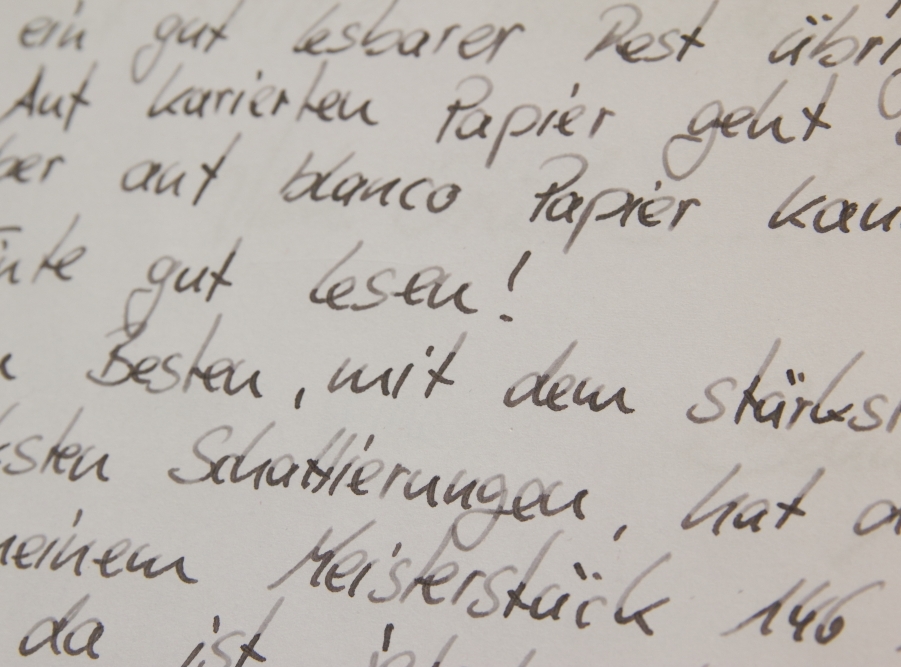 ein gut lesbarer Rest übri
Auf karierten Papier geht
ber auf blanco Papier kan
inte gut lesen!
n Besten, mit dem stärks
ksten Schattierungen, hat d
meinem Meisterstück 146
da ist